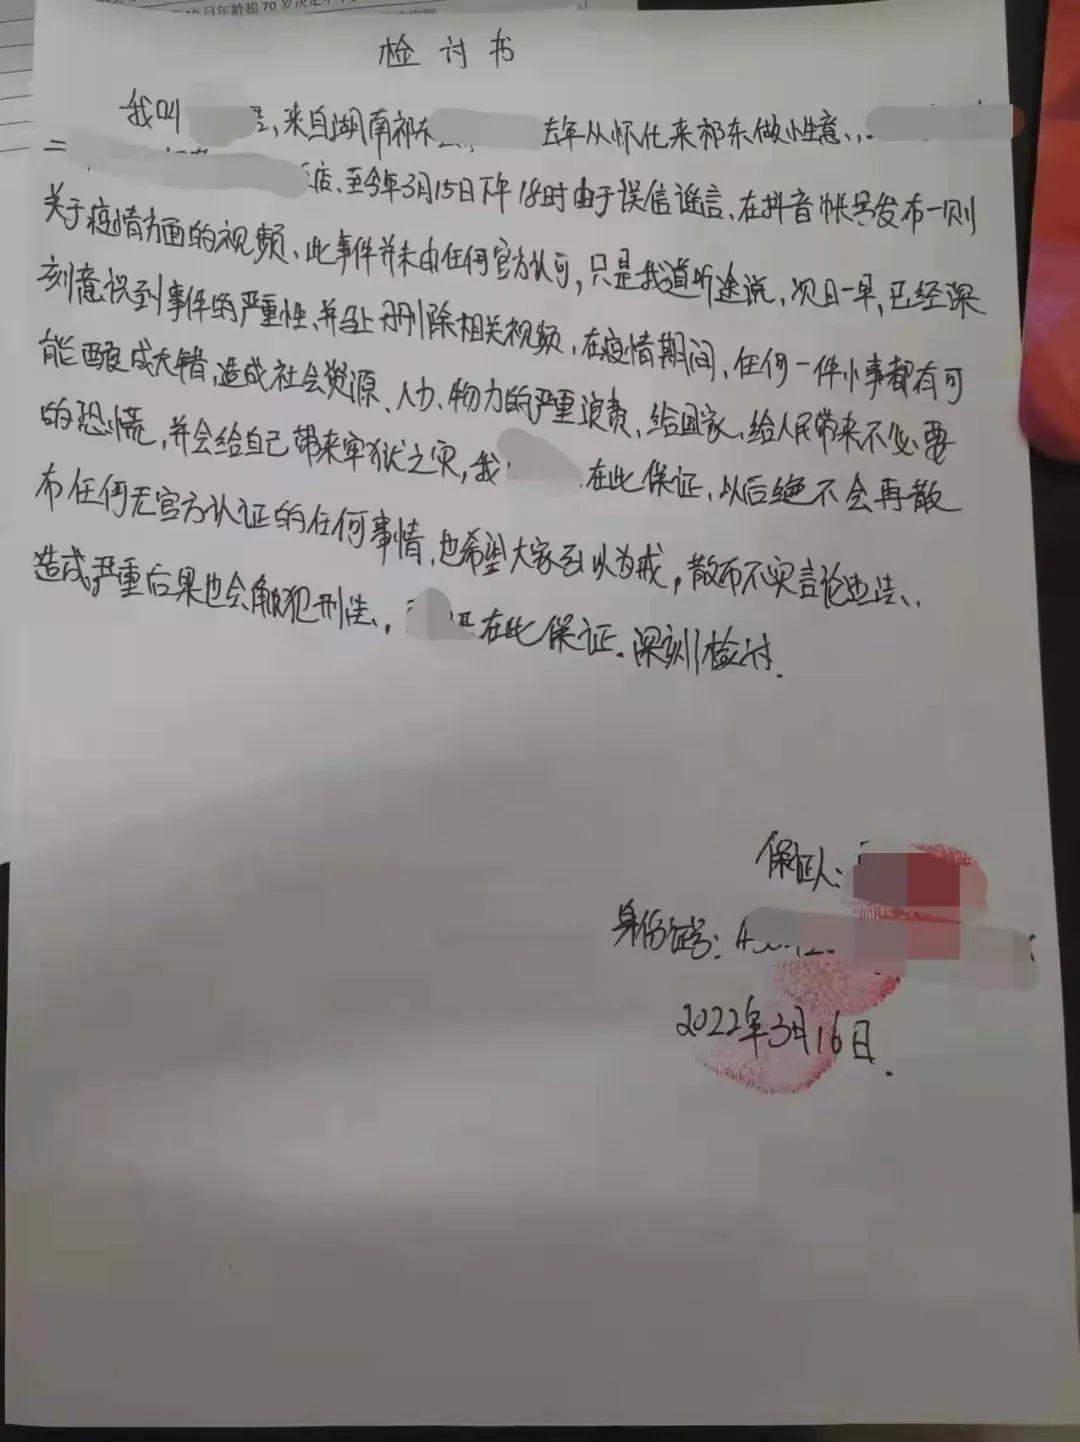 日年龄超70岁决定
检讨书
我叫 来自湖南祁东 去年从怀化来祁东做性意、
二 店、至今年3月15日下午18时由于误信谣言、在抖音帐号发布一则
关于疫情方面的视频、此事件并未由任何官方认可,只是我道听途说,次日一早,已经深
刻意识到事件的严重性、并马上删除相关视频,在疫情期间、任何一件小事都有可
能酿成大错,造成社会资源、人力、物力的严重浪费、给国家、给人民带来不必要
的恐慌,并会给自己带来牢狱之灾,我 在此保证、以后绝不会再散
布任何无官方认证的任何事情,也希望大家引以为戒,散布不实言论违法、
造成严重后果也会触犯刑法、, 在此保证.深刻检讨.
保证人:
身份证号:
2022年3月16日.